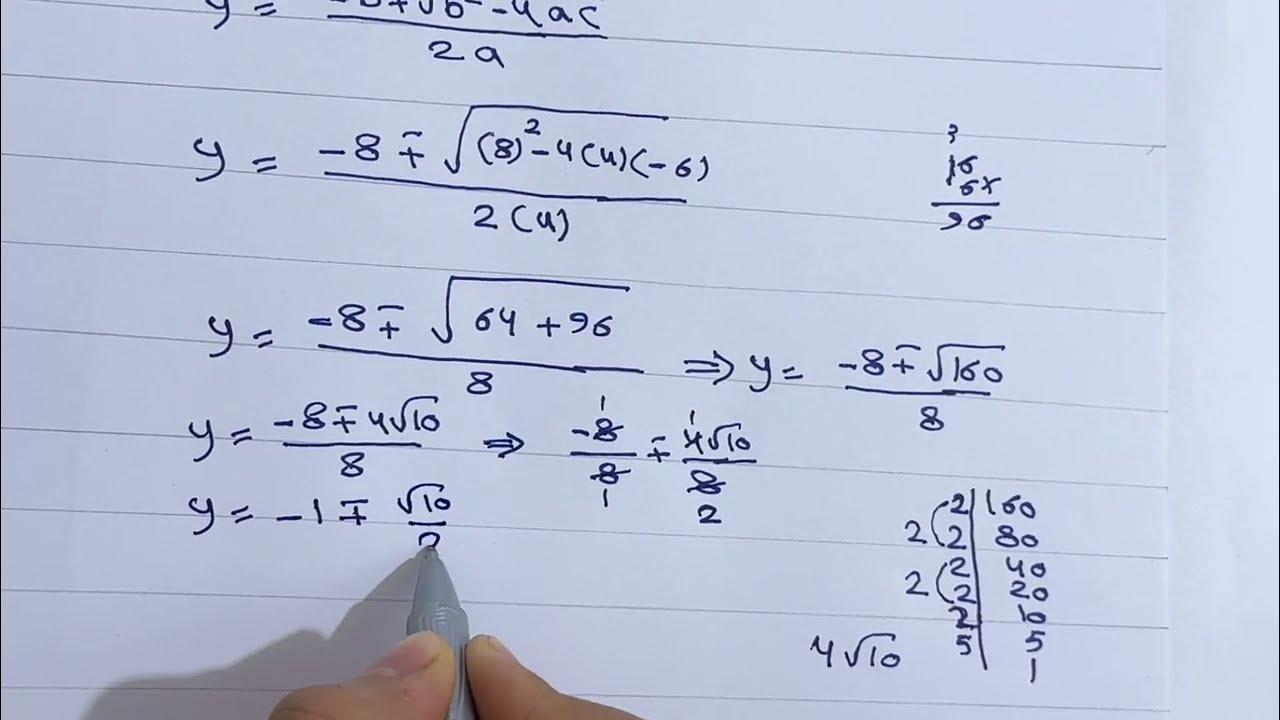 y = -b∓√b²-4ac / 2a
y = -8∓√(8)²-4(4)(-6) / 2(4)
3
16
6x
96
y = -8∓√64+96 / 8 ⇒ y = -8∓√160 / 8
y = -8∓4√10 / 8 ⇒ -8/8 ∓ 4√10/8
1 1
1 2
y = -1 ∓ √10 / 2
2 | 160
2 ( 2 | 80
2 | 40
2 ( 2 | 20
2 | 10
5 | 5
1
4√10